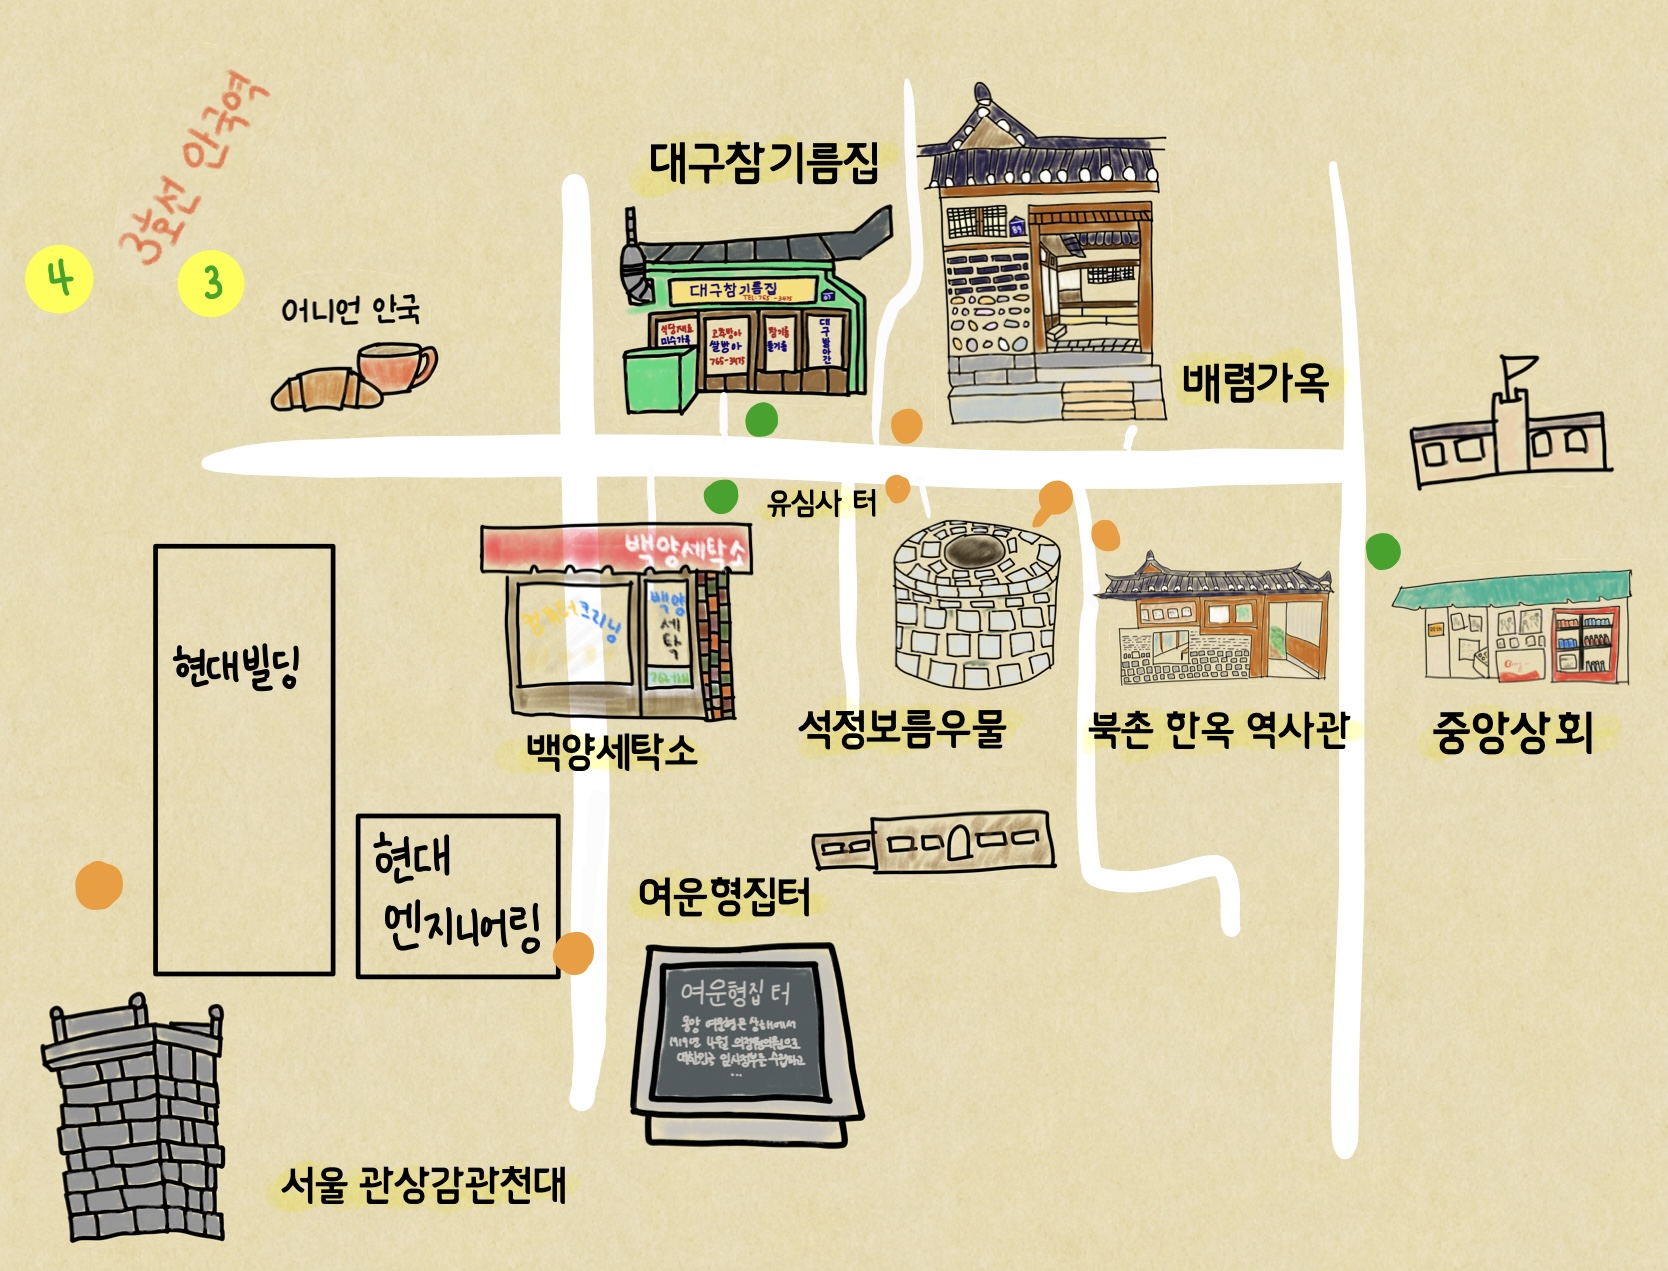 3호선 안국역
4
3
어니언 안국
대구참기름집
대구참기름집
TEL: 765-3475
식당재료
미수가루
고추방아
쌀방아
765-3475
참기름
들기름
대구방아간
배렴가옥
유심사 터
백양세탁소
컴퓨터크리닝
백양
세
탁
백양세탁소
석정보름우물
북촌 한옥 역사관
중앙상회
현대빌딩
현대
엔지니어링
여운형집터
여운형집 터
몽양 여운형은 상해에서
1919년 4월 의정원의원으로
대한민국 임시정부를 수립하고
...
서울 관상감관천대